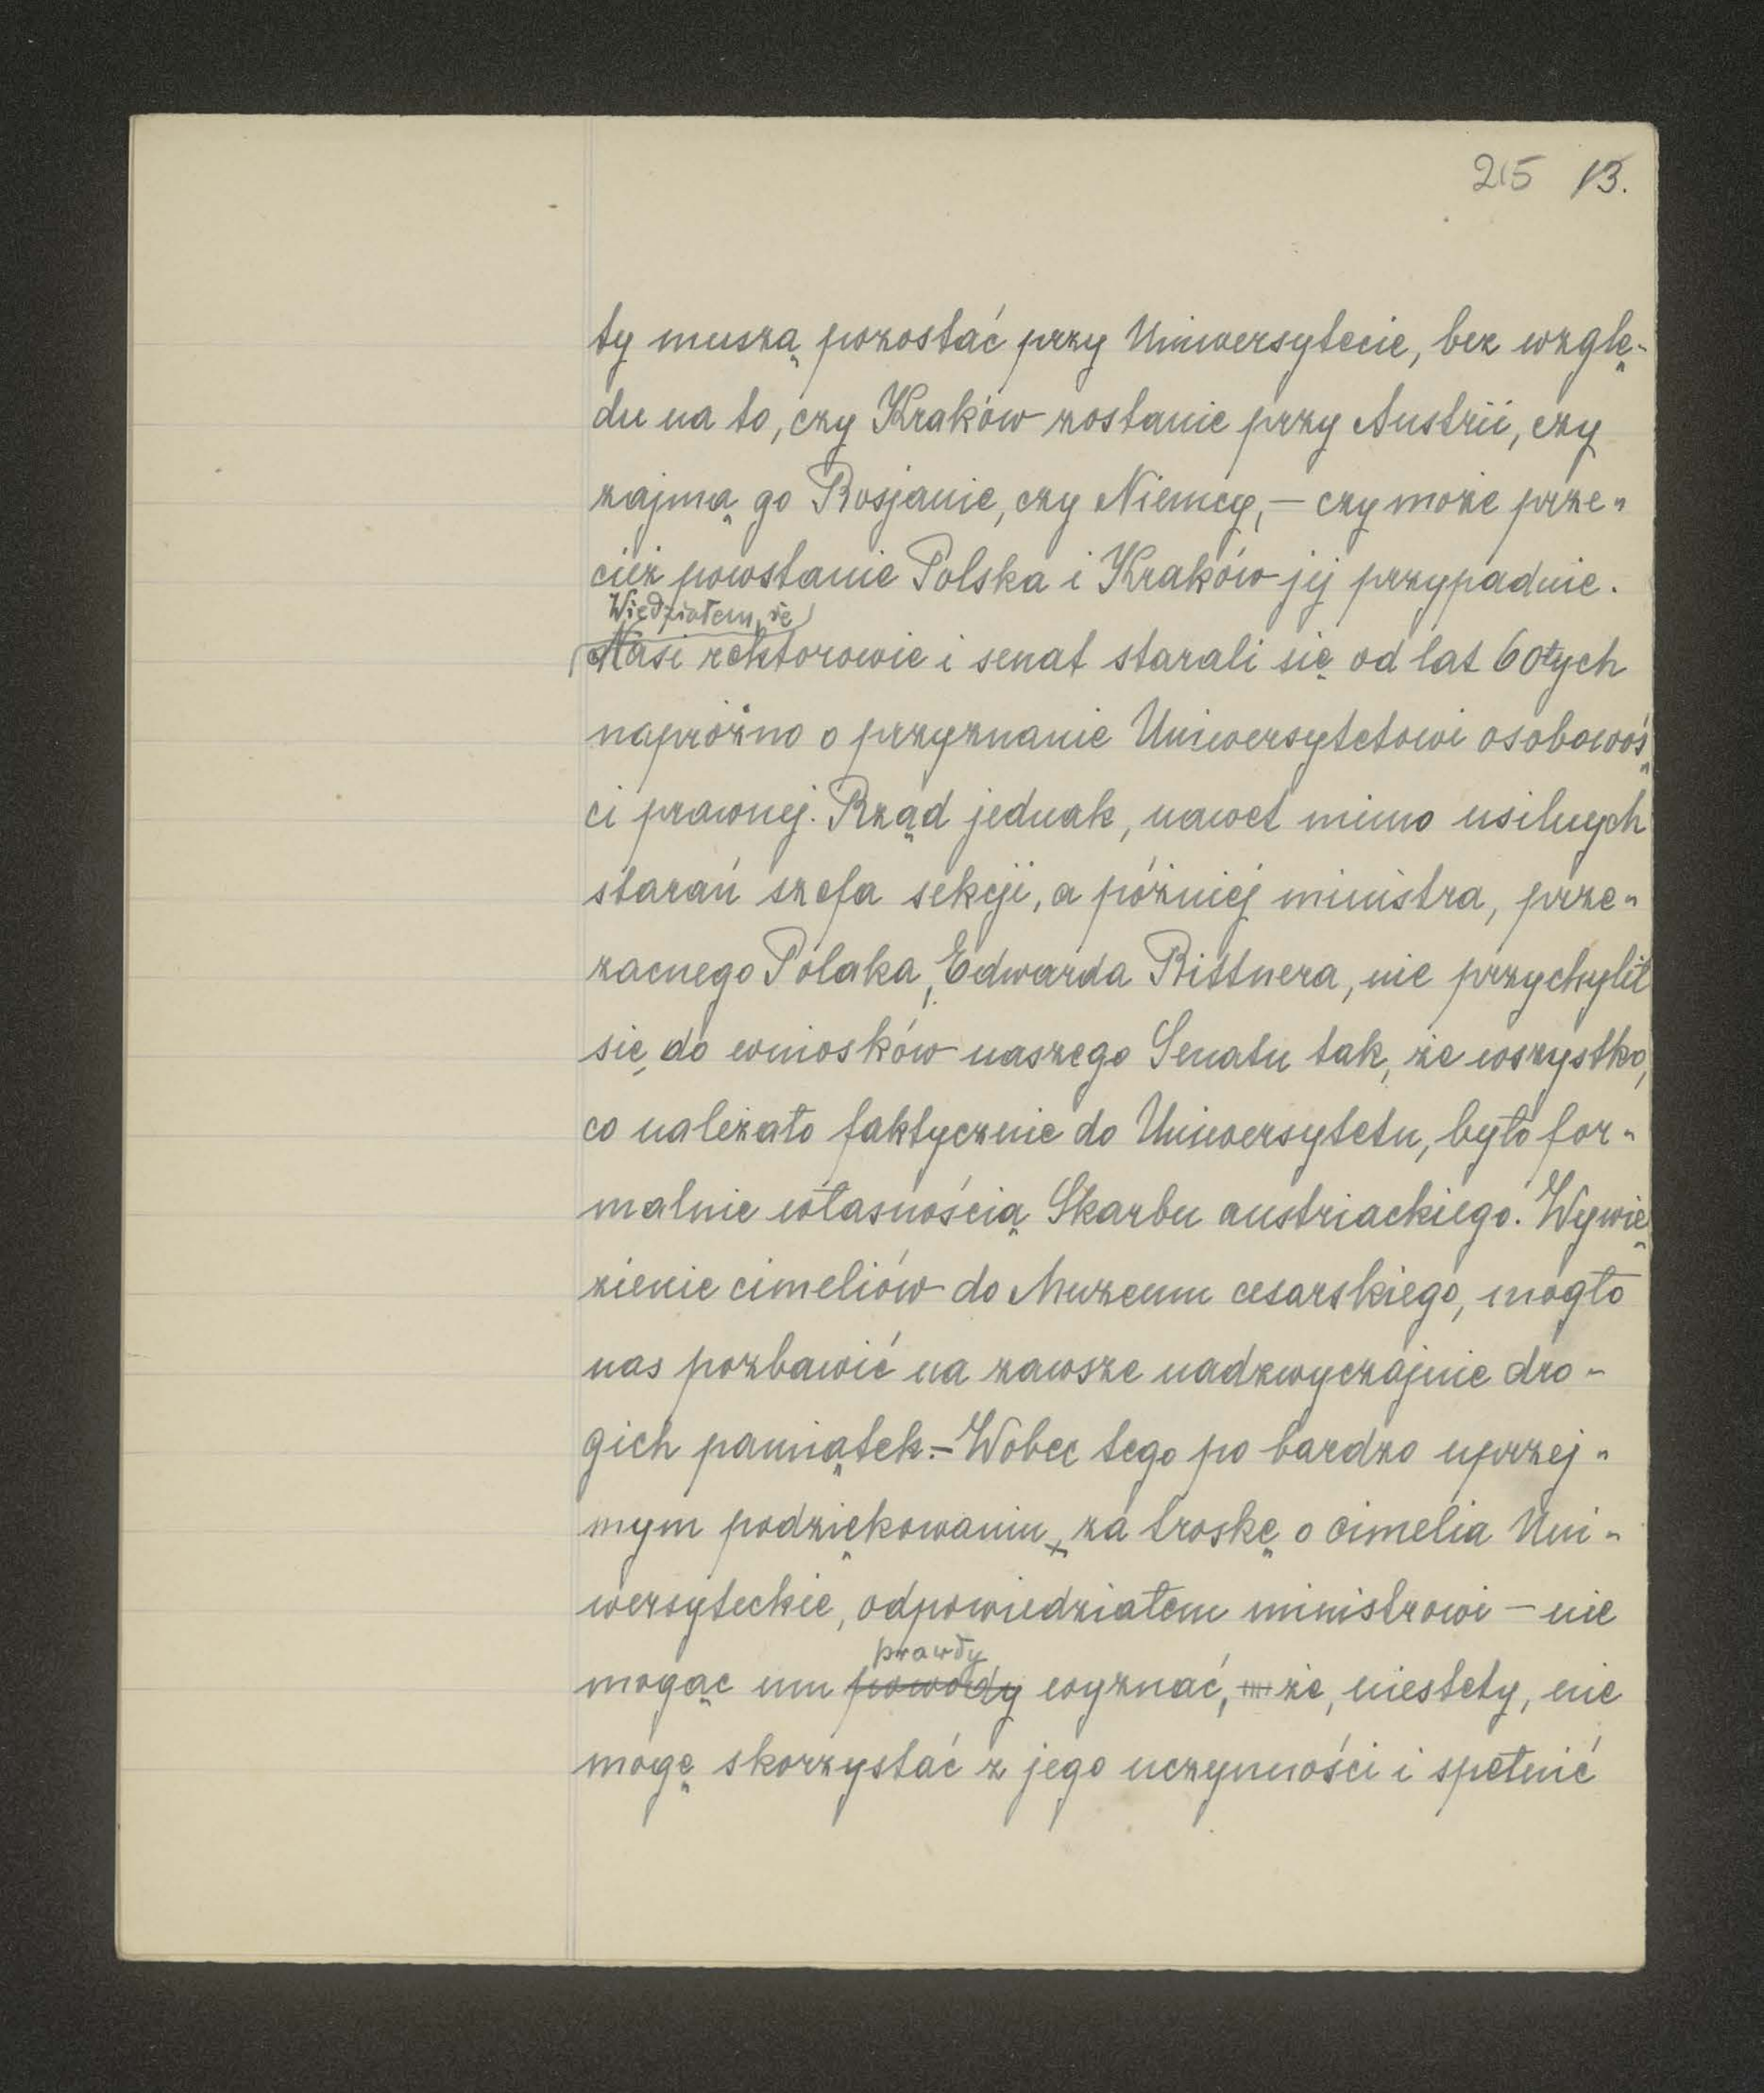 215 13.
ty muszą pozostać przy Uniwersytecie, bez wzglę-
du na to, czy Kraków zostanie przy Austrii, czy
zajmą go Rosjanie, czy Niemcy, — czy może prze-
cież powstanie Polska i Kraków jej przypadnie.
Wiedziałem, że
Nasi rektorowie i senat starali się od lat 60tych
napróżno o przyznanie Uniwersytetowi osobowoś-
ci prawnej. Rząd jednak, nawet mimo usilnych
starań szefa sekcji, a później ministra, prze-
zacnego Polaka, Edwarda Rittnera, nie przychylił
się do wniosków naszego Senatu tak, że wszystko,
co należało faktycznie do Uniwersytetu, było for-
malnie własnością Skarbu austriackiego. Wywie-
zienie cimeliów do Muzeum cesarskiego, mogło
nas pozbawić na zawsze nadzwyczajnie dro-
gich pamiątek. — Wobec tego po bardzo uprzej-
mym podziękowaniu, za troskę o cimelia Uni-
wersyteckie, odpowiedziałem ministrowi — nie
prawdy
mogąc mu powody wyznać, że, niestety, nie
mogę skorzystać z jego uczynności i spełnić